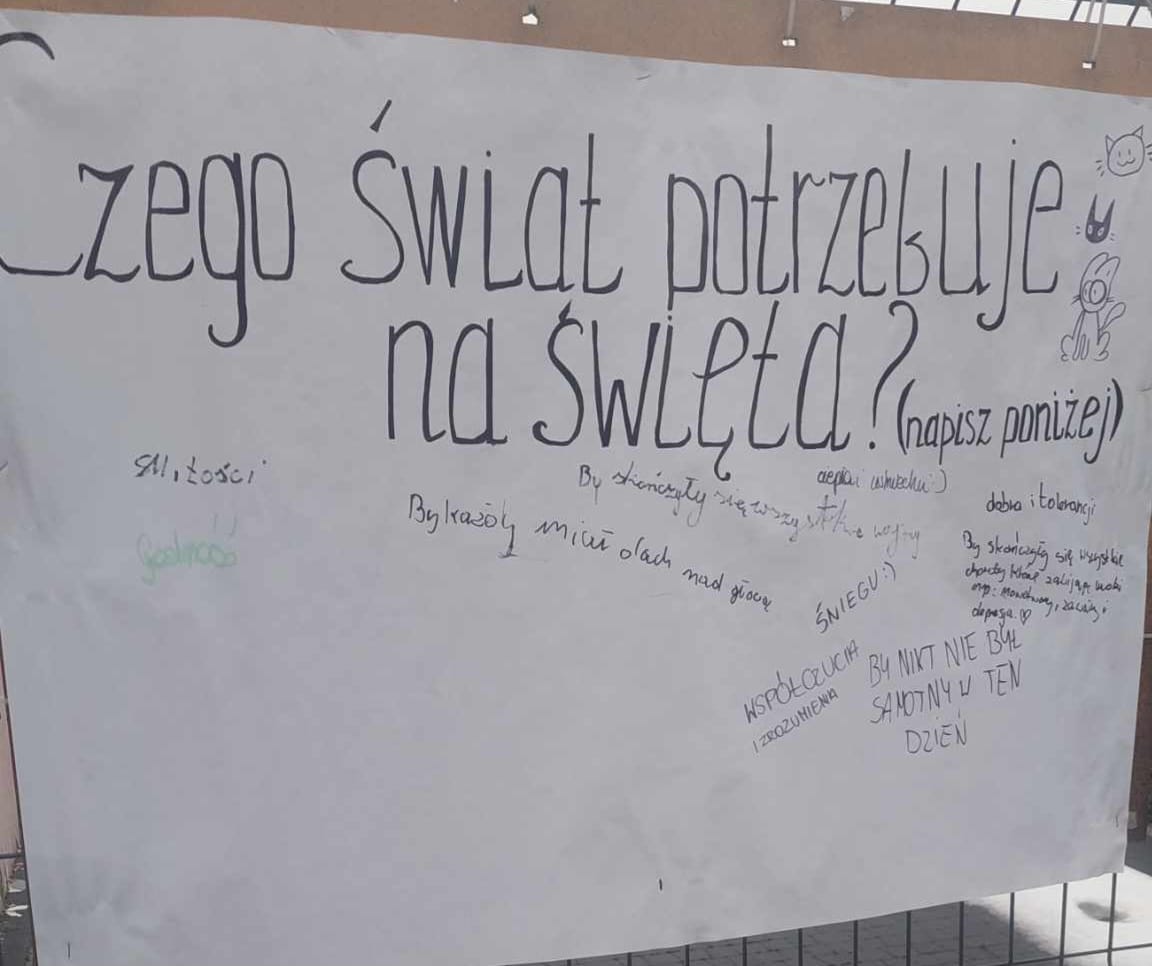 Czego świat potrzebuje
na święta?
(napisz poniżej)
Miłości
By skończyły się wszystkie wojny
ciepła i uśmiechu :)
dobra i tolerancji
By każdy miał dach nad głową
By skończyły się wszystkie
choroby które zabijają
np: nowotwory, i
depresja ♡
ŚNIEGU :)
WSPÓŁCZUCIA
I ZROZUMIENIA
BY NIKT NIE BYŁ
SAMOTNY W TEN
DZIEŃ